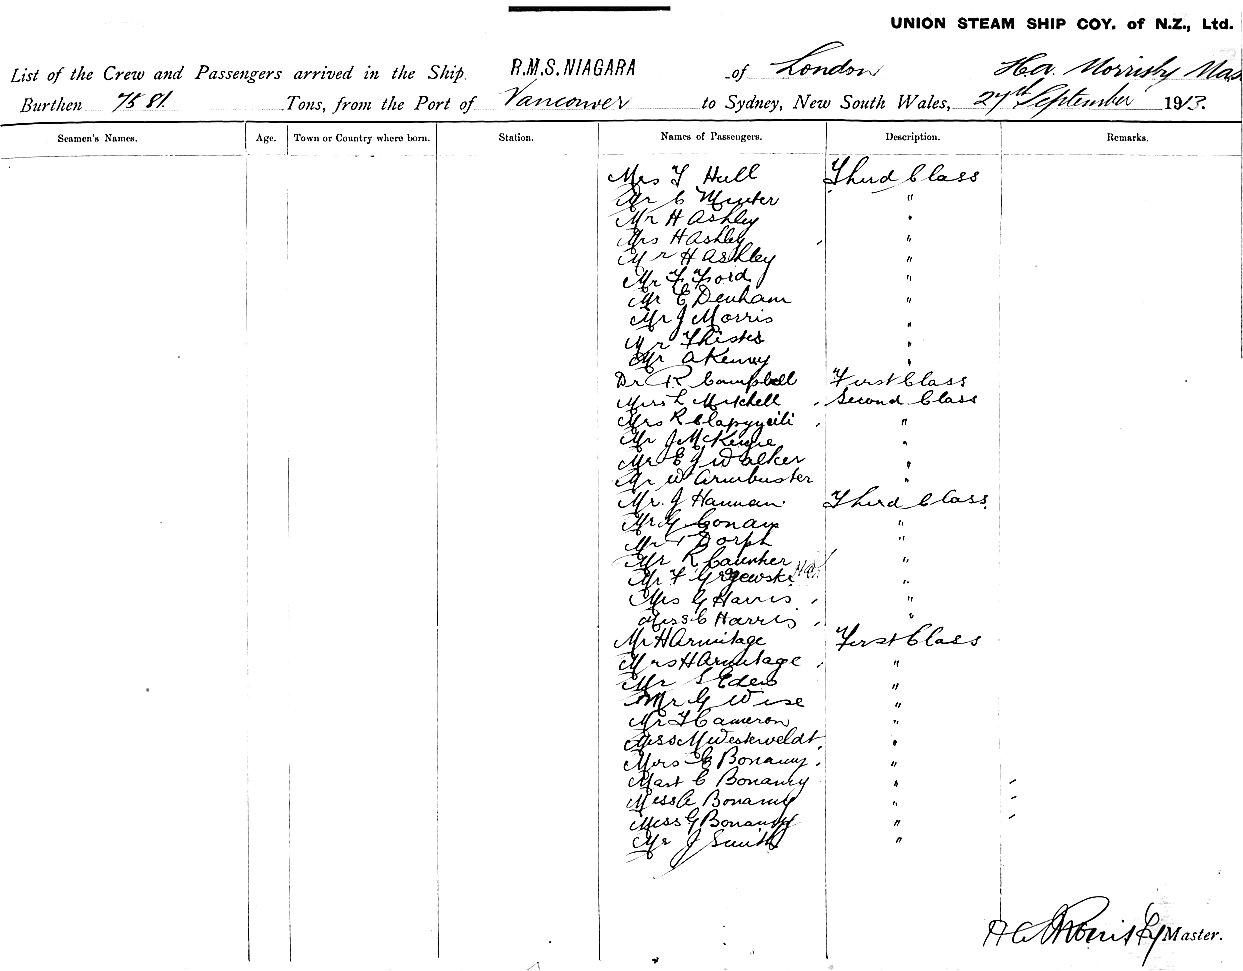 UNION STEAM SHIP COY. of N.Z., Ltd.
List of the Crew and Passengers arrived in the Ship R.M.S. NIAGARA of London H.A. Morrisby Mas
Burthen 7581 Tons, from the Port of Vancouver to Sydney, New South Wales, 27th September 1913.
Seamen's Names. Age. Town or Country where born. Station. Names of Passengers. Description. Remarks.
Mrs F Hull Third Class
Mr C Minter "
Mr H Ashley "
Mrs H Ashley "
Mr H Ashley "
Mr F Ford "
Mr E Denham "
Mr J Morris "
Mr "
Mr A Kenny "
Dr R Campbell First Class
Miss L Mitchell Second Class
Mrs R "
Mr J McKenzie "
Mr E J Walker "
Mr W Armbuster "
Mr. J Hannan Third Class
Mr G Conan "
Mr Dorph "
Mr R "
Mr F "
Mrs G Harris "
Miss C Harris "
Mr H Armitage First Class
Mrs H Armitage "
Mr S Eden "
Mr G Wise "
Mr F Cameron "
Miss M Westerveldt "
Mrs G Bonamy "
Mast C Bonamy "
Miss A Bonamy "
Miss G Bonamy "
Mr J Smith "
H A Morrisby Master.